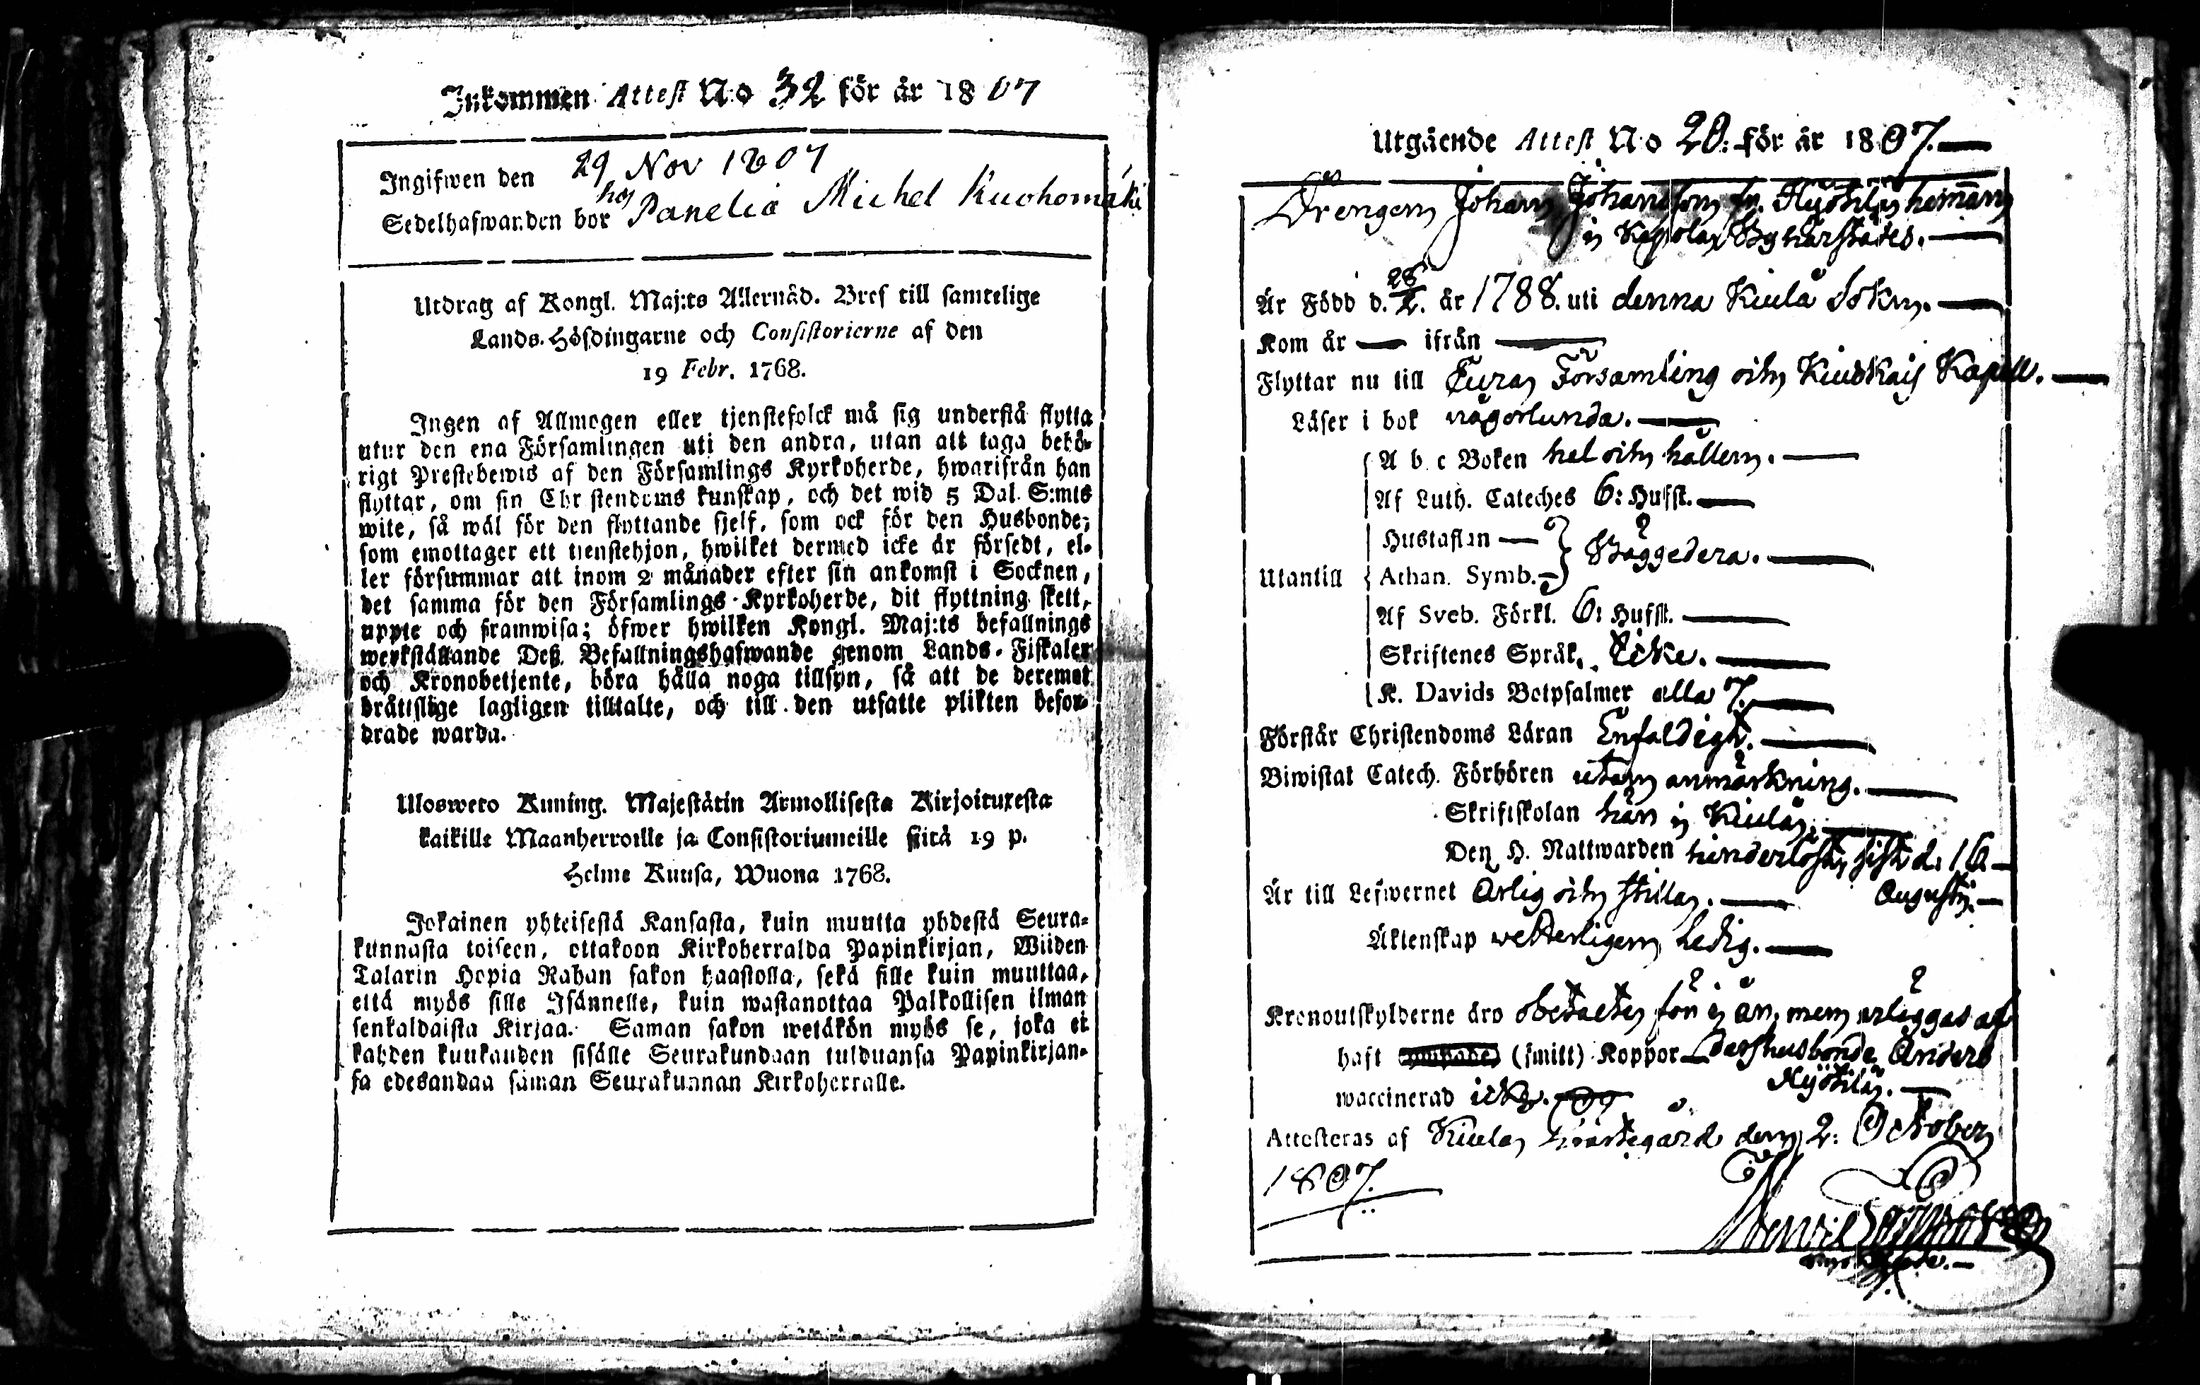 Inkommen Attest No 32 för år 1807
Ingifwen den 29 Nov 1807
Sedelhafwanden bor hos Panelia Michel Kuohomäki
Utdrag af Kongl. Maj:ts Allernåd. Bref till samtelige
Lands-Höfdingarne och Consistorierne af den
19 Febr. 1768.
Ingen af Allmogen eller tjenstefolck må sig understå flytta
utur den ena Församlingen uti den andra, utan att taga behö-
rigt Prestebewis af den Församlings Kyrkoherde, hwarifrån han
flyttar, om sin Christendoms kunskap, och det wid 5 Dal. S:mts
wite, så wäl för den flyttande sjelf, som ock för den Husbonde,
som emottager ett tienstehjon, hwilket dermed icke är försedt, el-
ler försummar att inom 2 månader efter sin ankomst i Socknen,
det samma för den Församlings-Kyrkoherde, dit flyttning skett,
uppte och framwisa; öfwer hwilken Kongl. Maj:ts befallnings
werkställande Deß Befallningshafwande genom Lands-Fiskaler
och Kronobetjente, böra hålla noga tillsyn, så att de deremot
brättslige lagligen tilltalte, och till den utsatte plikten befor-
drade warda.
Ulosweto Kuning. Majestätin Armollisesta Kirjoituxesta
kaikille Maanherroille ja Consistoriumeille siitä 19 p.
Helme Kuusa, Wuona 1768.
Jokainen yhteisestä Kansasta, kuin muutta yhdestä Seura-
kunnasta toiseen, ottakoon Kirkoherralda Papinkirjan, Wiiden
Talarin Hopia Rahan sakon haastolla, sekä sille kuin muuttaa,
että myös sille Isännelle, kuin wastanottaa Palkollisen ilman
senkaldaista Kirjaa. Saman sakon wetäkön myös se, joka ei
kahden kuukauden sisälle Seurakundaan tulduansa Papinkirjan-
sa edesandaa saman Seurakunnan Kirkoherralle.
Utgående Attest No 20: för år 1807.
Drengen Johan Johansson fr. Kyötilä hemman
i Kepola By härstädes.
Är Född d. 28/2. år 1788. uti denna Kiula Sokn.
Kom år — ifrån —
Flyttar nu till Eura Församling och Kiukais Kapell.
Läser i bok någorlunda.
A b c Boken hel och hållen.
Af Luth. Cateches 6: Hufst.
Hustaflan —
Bäggedera.
Utantill Athan. Symb. —
Af Sveb. Förkl. 6: Hufst.
Skriftenes Språk. Icke.
K. Davids Botpsalmer alla 7.
Förstår Christendoms Läran Enfaldigt.
Biwistat Catech. Förhören utan anmärkning.
Skriftskolan här i Kiula.
Den H. Nattwarden hinderlöst, sist d: 16
Augusti.
Är till Lefwernet Ärlig och stilla.
Äktenskap wetterligen ledig.
Kronoutskylderne äro obetalte för i år, men erläggas af
haft (smitt) Koppor — dess husbonde Anders
Kyötilä.
waccinerad icke.
Attesteras af Kiula Prästegård den 2: October
1807.